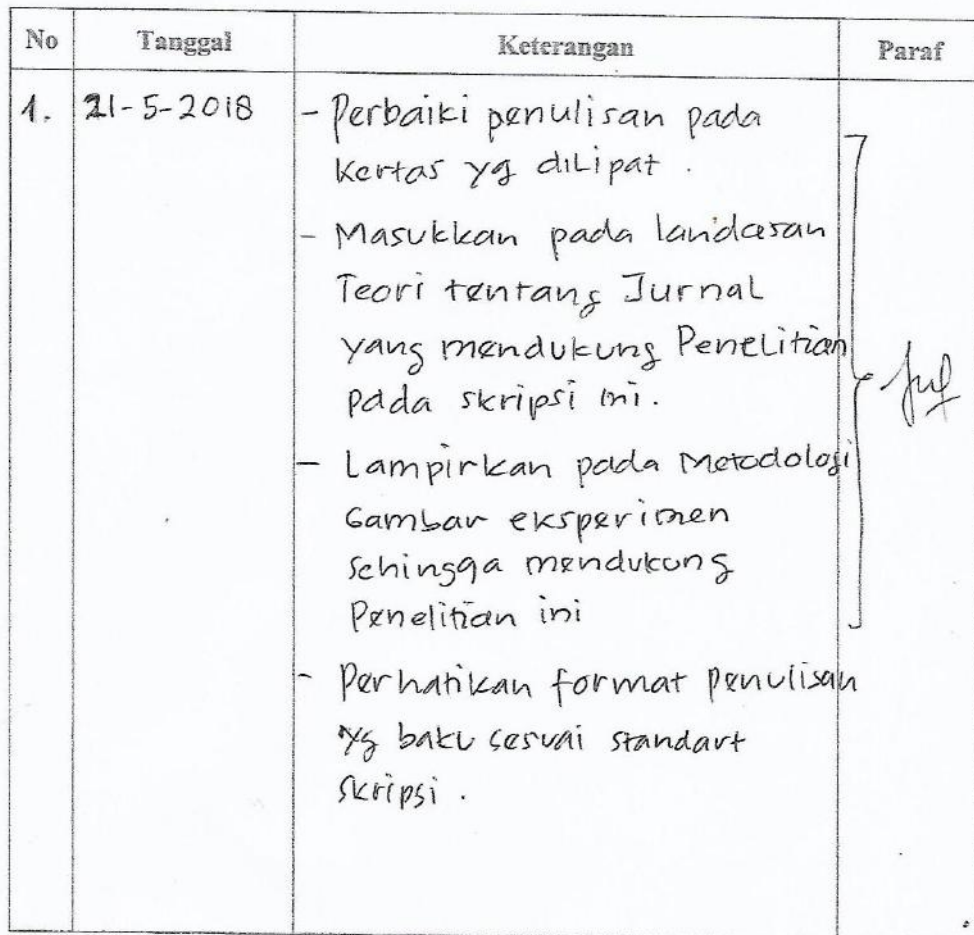 No Tanggal Keterangan Paraf
1. 21-5-2018 - Perbaiki penulisan pada
Kertas yg diLipat .
- Masukkan pada landasan
Teori tentang Jurnal
yang mendukung Penelitian
pada skripsi ini.
- Lampirkan pada Metodologi
Gambar eksperimen
Sehingga mendukung
Penelitian ini
- Perhatikan format penulisan
yg baku sesuai standart
skripsi .